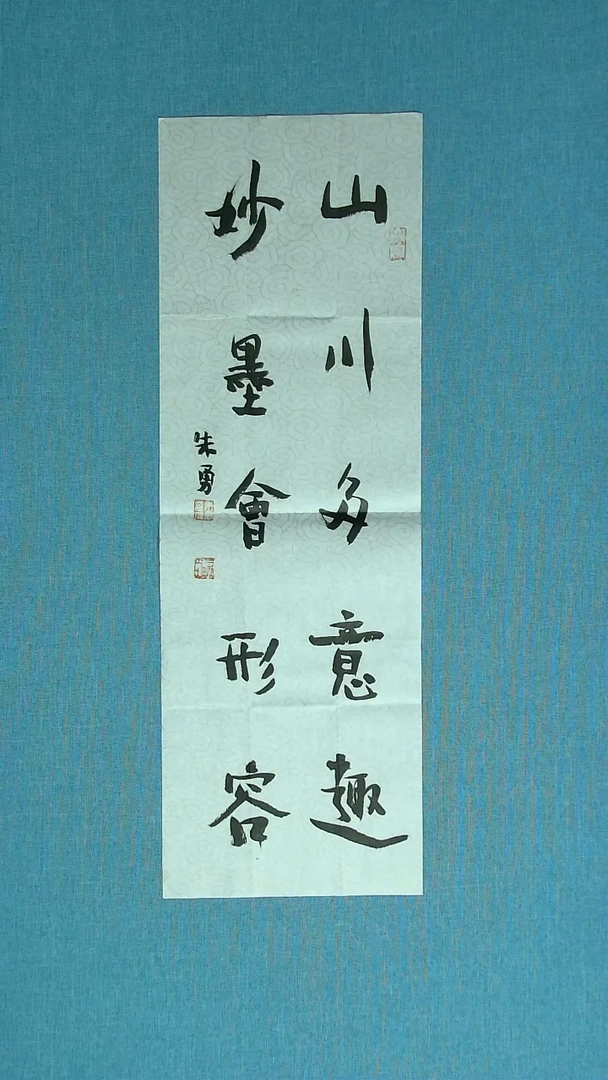 山川多意趣
妙墨會形容
朱勇